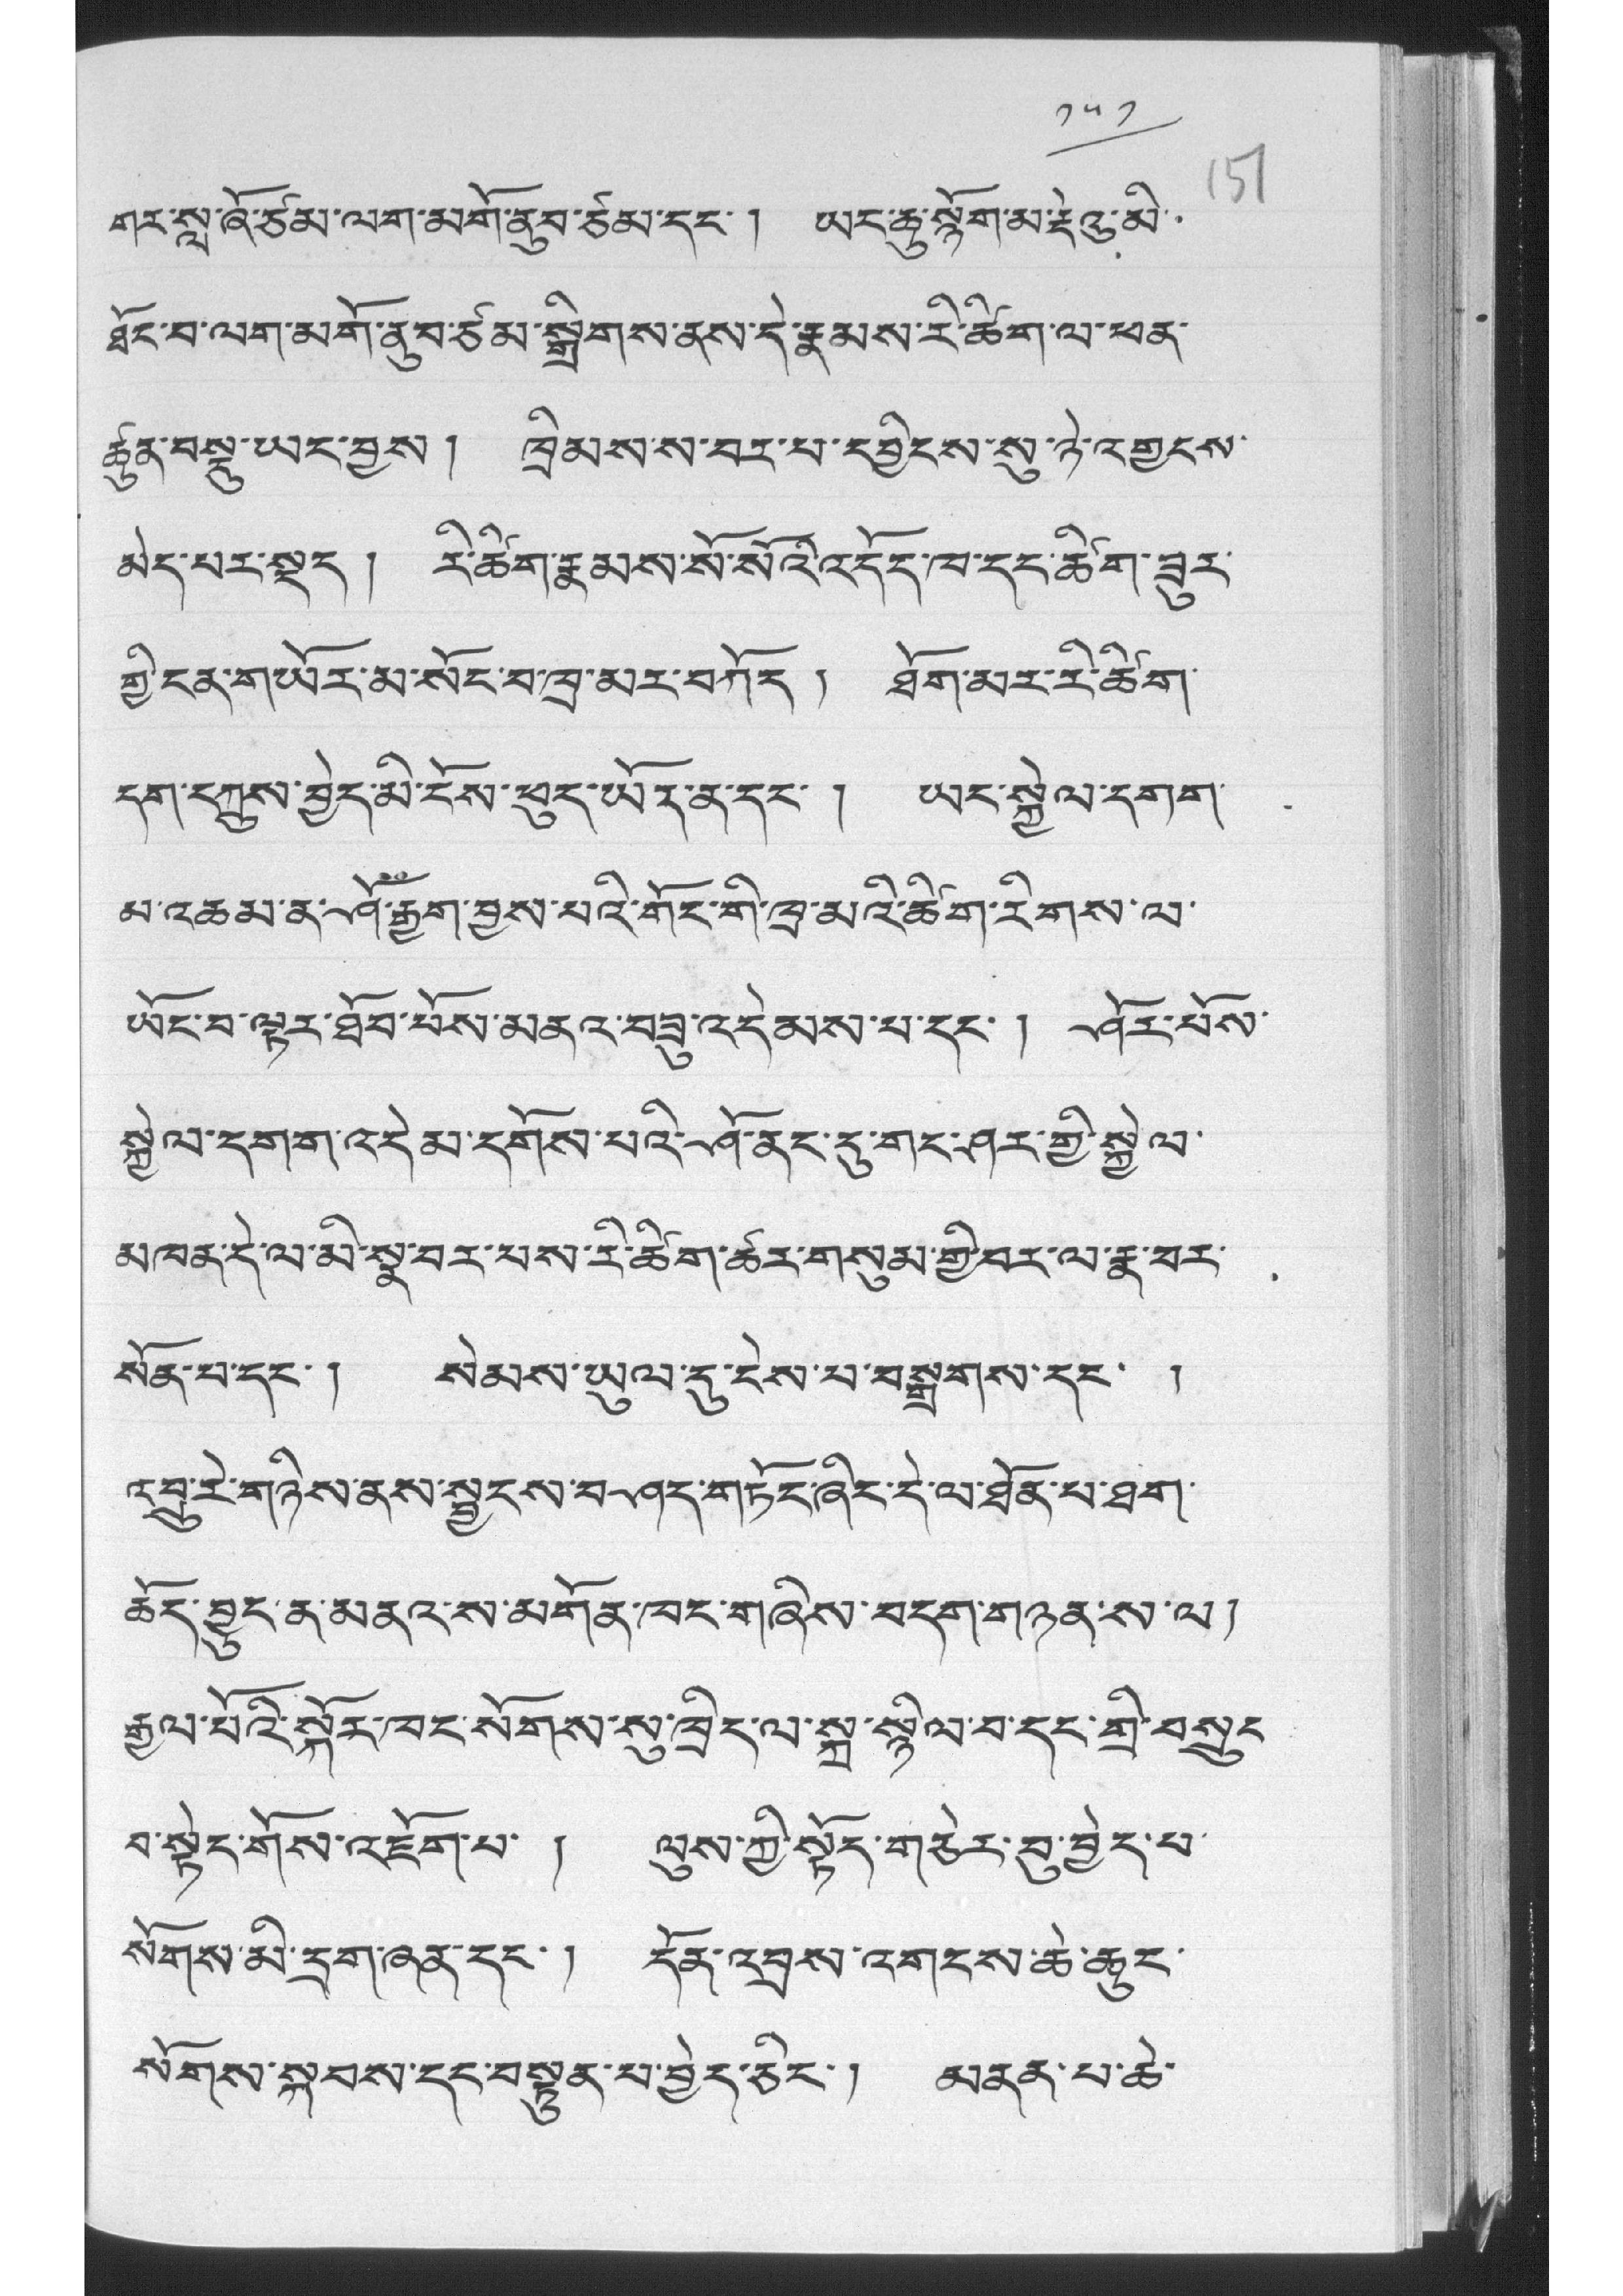 ༡༥༡
151
གར་སླ་ཞོ་ཙམ་ལག་མགོ་ནུབ་ཙམ་དང་། ཡང་ཆུ་རྙོག་མ་རྡེའུ་མི་
ཐོང་བ་ལག་མགོ་ནུབ་ཙམ་སྒྲིགས་ནས་དེ་རྣམས་རི་ཚིག་ལ་ཕན་
ཚུན་བསྡུ་ཡང་བྱས། ཁྲིམས་ས་བར་པ་དབྱིངས་སུ་ཉེ་འགྱངས་
མེད་པར་སྡད། རི་ཚིག་རྣམས་སོ་སོའི་འདོད་ཁ་དང་ཚིག་ཟུར་
གྱི་ངན་གཡོར་མ་སོང་བ་ཁྲ་མར་བཀོད། ཐོག་མར་རི་ཚིག་
དག་དཀྱུས་བྱེད་མི་ངོས་ཕུད་ཡོད་ན་དང་། ཡང་སྐྱེལ་དགག་
མ་འཆམ་ན་ཤོ་རྒྱག་བྱས་པའི་གོང་གི་ཁྲ་མའི་ཚིག་རིགས་ལ་
ཡོང་བ་ལྟར་ཐོབ་པོས་མནའ་བཟུ་འདེམས་པ་དང་། ཤོར་པོས་
སྐྱེལ་དགག་འདེམ་དགོས་པའི་ཤོ་ནང་དུ་གང་ཤར་གྱི་སྐྱེལ་
མཁན་དེ་ལ་མི་སྣ་བར་པས་རི་ཚིག་ཚར་གསུམ་གྱི་བར་ལ་རྣ་བར་
སོན་པ་དང་། སེམས་ཡུལ་དུ་ངེས་པ་བསྒྲགས་དང་།
འབྲུ་རེ་གཉིས་ནས་སྦྱངས་བཤད་གཏོང་ཞིང་དེ་ལ་ཐོན་པ་ཐག་
ཆོད་བྱུང་ན་མནའ་ས་མགོན་ཁང་གཞིས་བདག་གཉན་ས་ལ།
རྒྱལ་པོའི་སྐོར་ཁང་སོགས་སུ་ཁྲིད་ལ་སྐྲ་སྙིལ་བ་དང་གྲི་བསྲུང
བ་སྟེང་གོས་འཇོག་པ་། ལུས་ཀྱི་སྟོད་གཅེར་བུ་བྱེད་པ་
སོགས་མི་དྲག་ཞན་དང་། དོན་འབྲས་འགངས་ཆེ་ཆུང་
སོགས་སྐབས་དང་བསྟུན་པ་བྱེད་ཅིང་། མནན་པ་ཆེ་